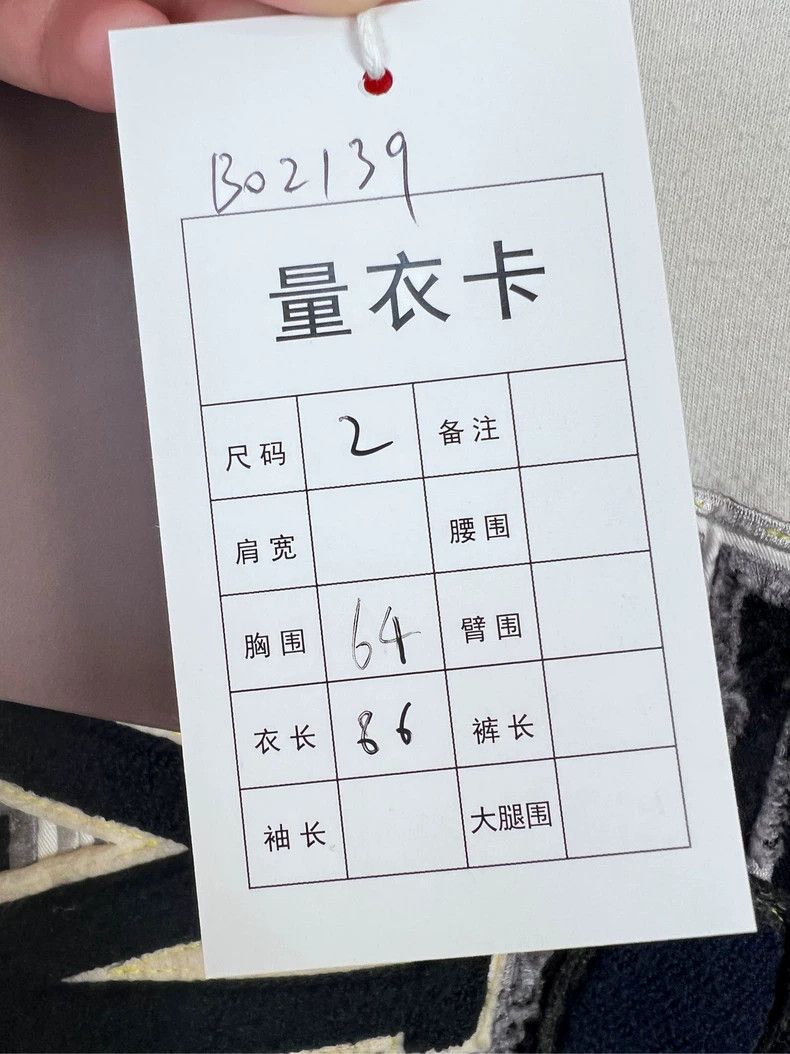 B02139
量衣卡
尺码 2 备注
肩宽 腰围
胸围 64 臂围
衣长 86 裤长
袖长 大腿围